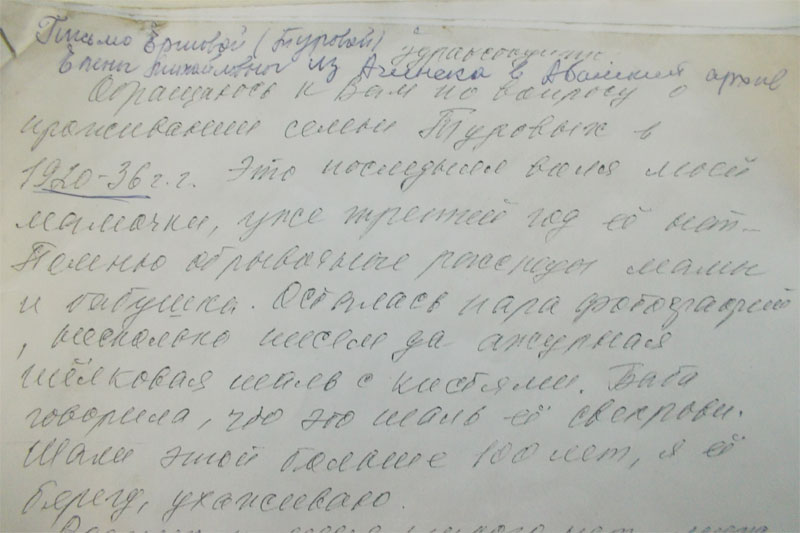 Письмо Ершовой (Туровой)
Елены Михайловны из Ачинска в Абайский архив
Здравствуйте
Обращаюсь к Вам по вопросу о
проживании семьи Туровых в
1920-36 г.г. Это последняя воля моей
мамочки, уже третий год её нет.
Помню обрывочные рассказы мамы
и бабушки. Осталась пара фотографий
, несколько писем да ажурная
шёлковая шаль с кистями. Баба
говорила, что это шаль её свекрови.
Шали этой больше 100 лет, я её
берегу, ухаживаю.